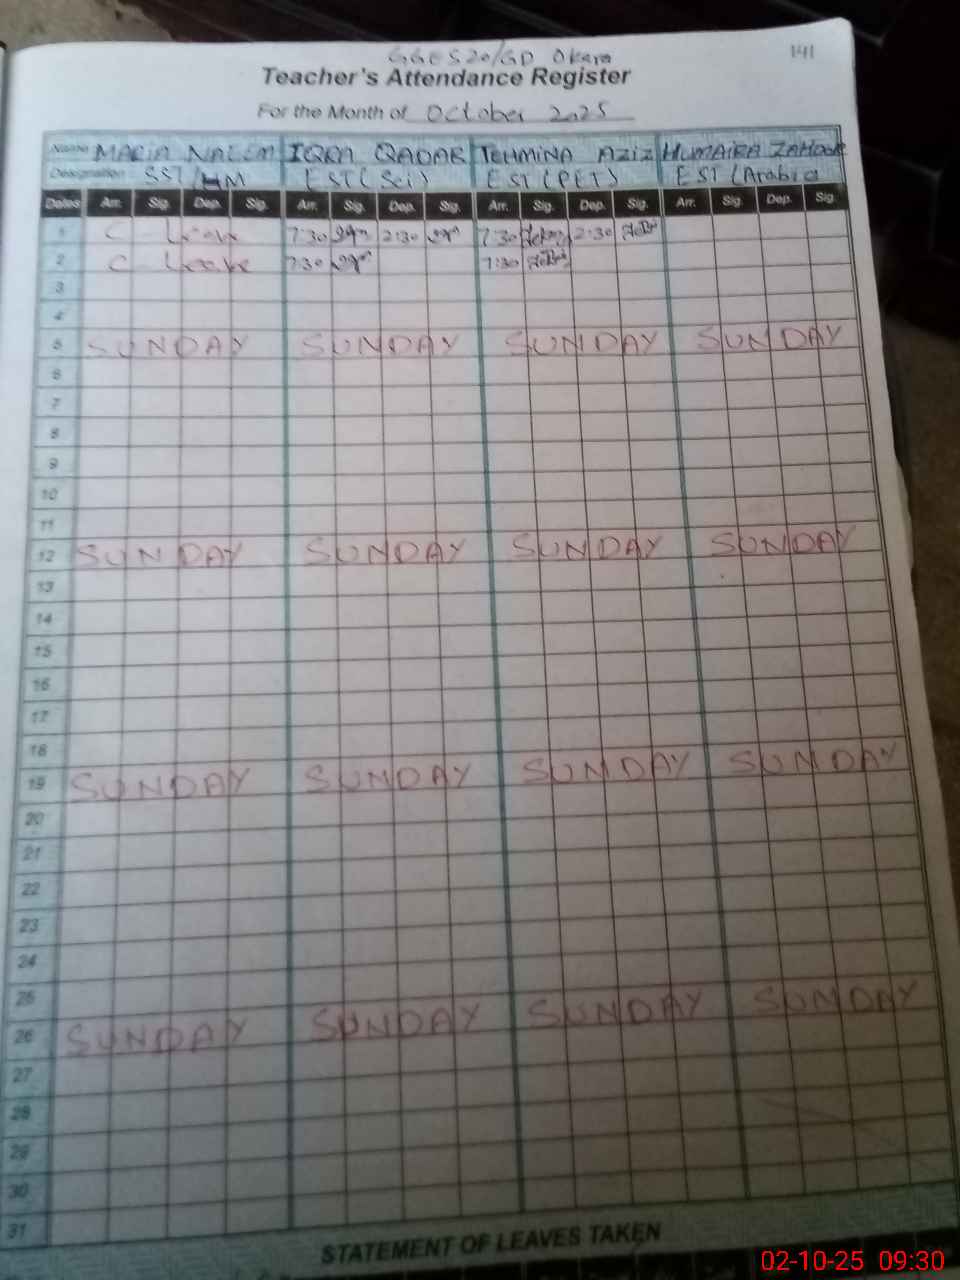 GGES 20/GD Okara
141
Teacher's Attendance Register
For the Month of October 2025
Name MARIA NAEEM IQRA QADAR TEHMINA AZIZ HUMAIRA ZAHOOR
Designation SST/HM EST(Sci) EST(PET) EST(Arabic
Dates Arr. Sig. Dep. Sig. Arr. Sig. Dep. Sig. Arr. Sig. Dep. Sig. Arr. Sig. Dep. Sig.
1 C - Leave 7:30 2:30 7:30 2:30
2 C Leave 7:30 7:30
3
4
5 SUNDAY SUNDAY SUNDAY SUNDAY
6
7
8
9
10
11
12 SUNDAY SUNDAY SUNDAY SUNDAY
13
14
15
16
17
18
19 SUNDAY SUNDAY SUNDAY SUNDAY
20
21
22
23
24
25
26 SUNDAY SUNDAY SUNDAY SUNDAY
27
28
29
30
31
STATEMENT OF LEAVES TAKEN
02-10-25 09:30